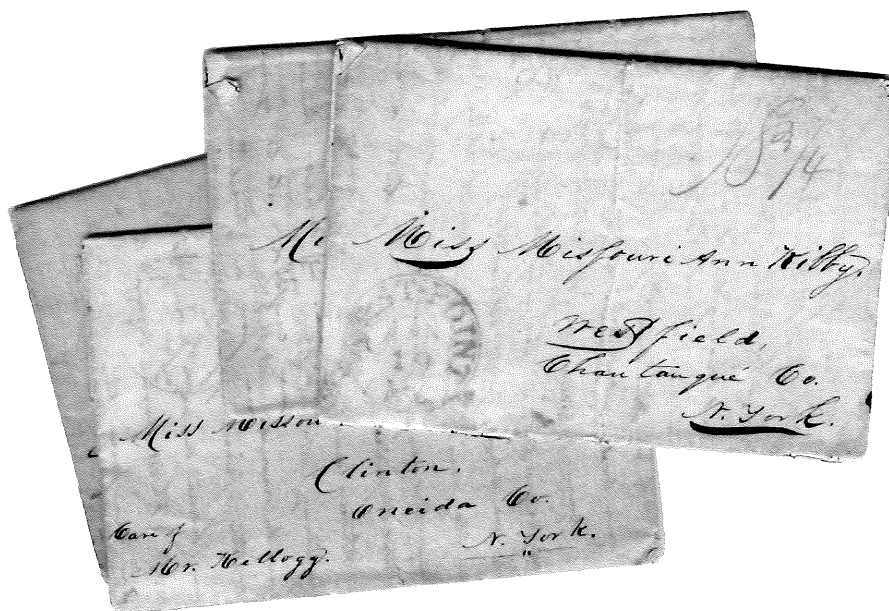 18 3/4
Miss Missouri Ann Kilby,
Westfield,
Chautauqué Co.
N. York.
Miss Missou
Clinton,
Oneida Co.
N. York.
Care of
Mr. Kellogg.